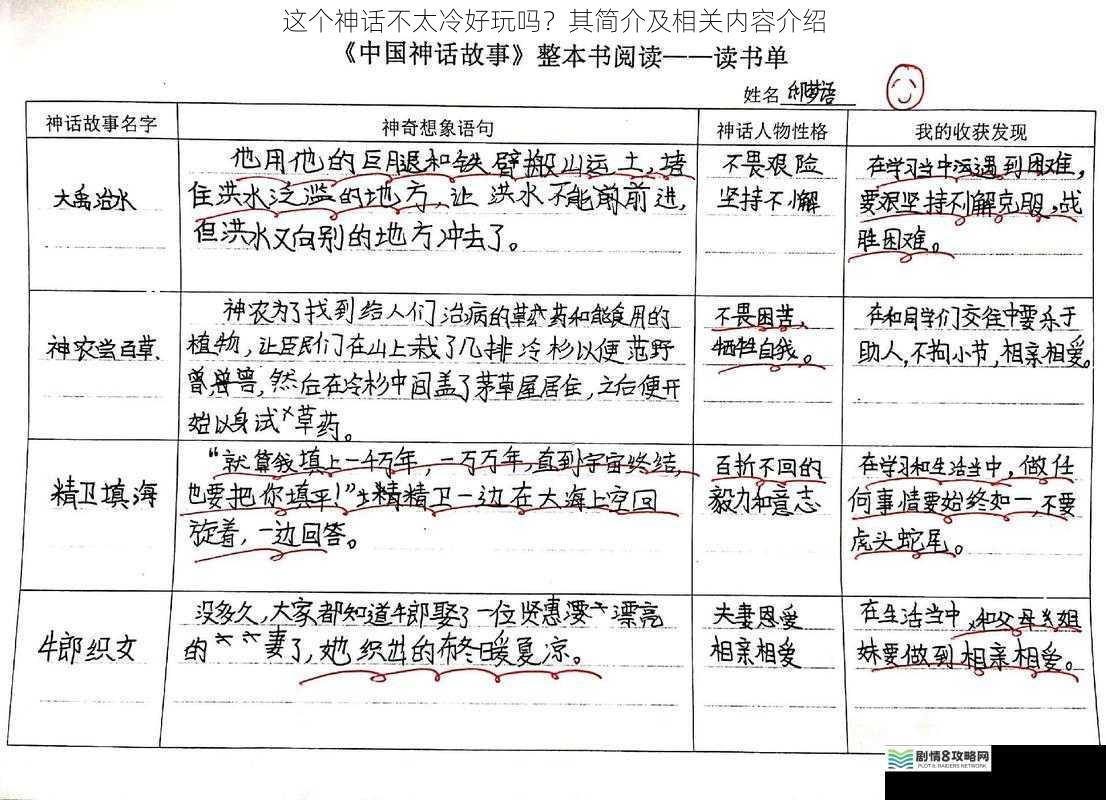 这个神话不太冷好玩吗？其简介及相关内容介绍
《中国神话故事》整本书阅读——读书单
姓名
神话故事名字
神奇想象语句
神话人物性格
我的收获发现
大禹治水
他用他的巨腿和铁臂搬山运土，堵
住洪水泛滥的地方，让洪水不能前前进，
但洪水又向别的地方冲去了。
不畏艰险
坚持不懈
在学习当中遇到困难，
要艰坚持不懈克服，战
胜困难。
神农尝百草、
神农为了找到给人们治病的草药和能食用的
植物，让臣民们在山上栽了几排冷杉以便范野
兽，然后在冷杉中间盖了茅草屋居住，之后便开
始以身试草药。
不畏困苦、
牺牲自我。
在和同学们交往中要乐于
助人，不拘小节，相亲相爱。
精卫填海
“就算我填上一千万年，一万万年，直到宇宙终结，
也要把你填平！”精精卫一边在大海上空回
旋着，一边回答。
百折不回的
毅力和意志
在学习和生活当中，做任
何事情要始终如一，不要
虎头蛇尾。
牛郎织女
没多久，大家都知道牛郎娶了一位贤惠漂漂亮
的妻了，她织出的布冬暖夏凉。
夫妻恩爱
相亲相爱
在生活当中，和父母兄姐
妹要做到相亲相爱。
剧情8攻略网
PLOT & RAIDERS NETWORK